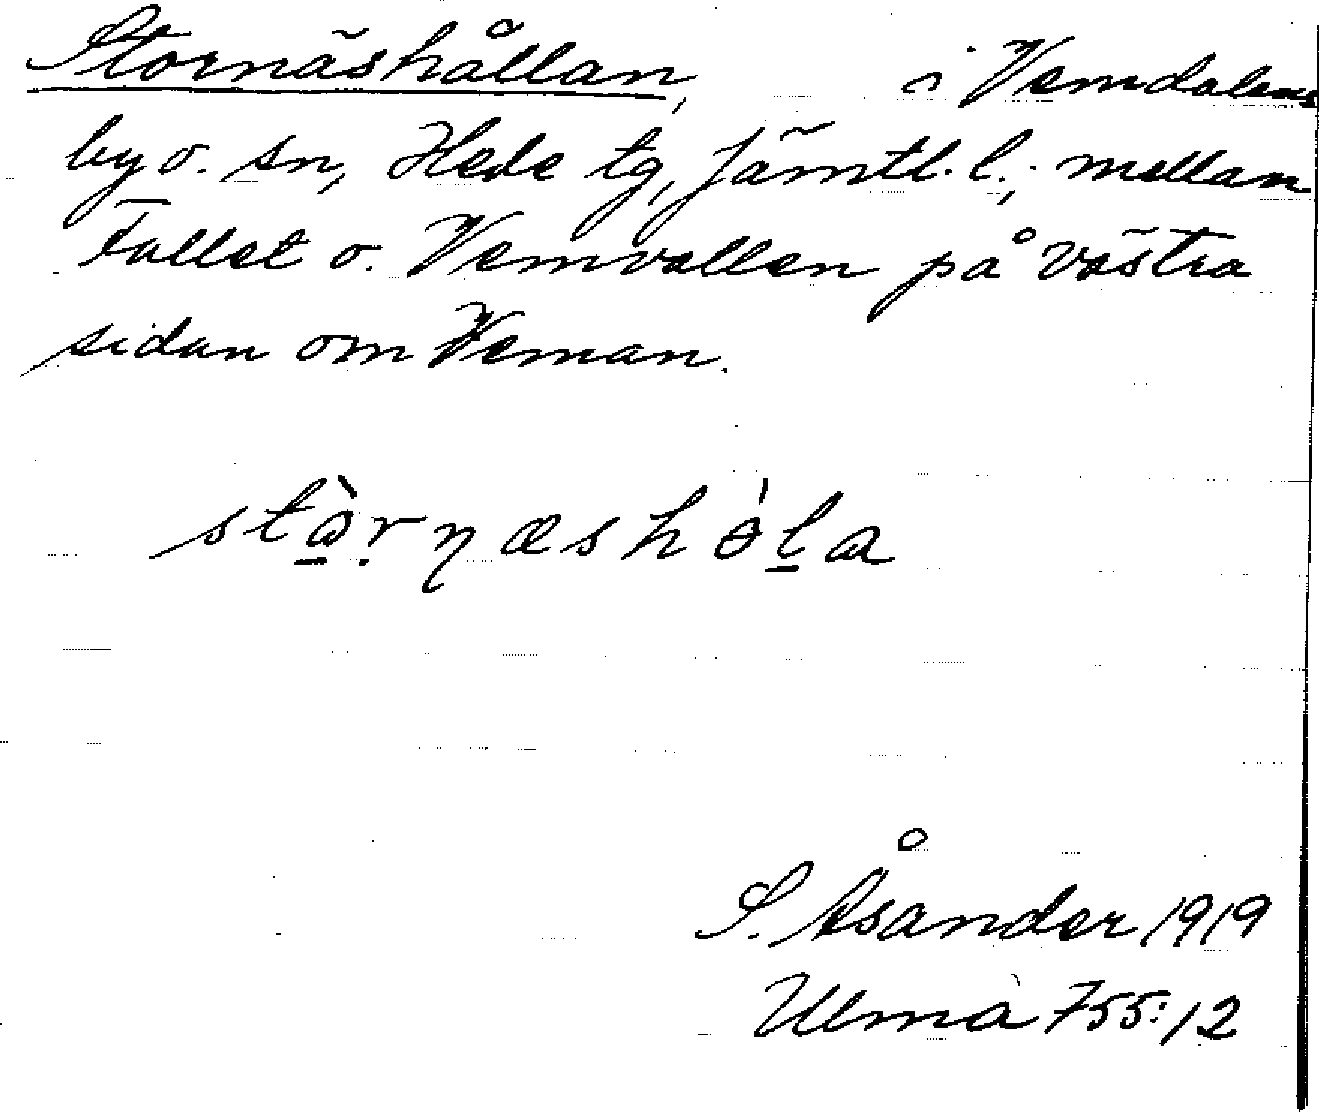 Stornäshållan, i Vemdalens
by o. sn, Hede tg, Jämtl. l.; mellan
Fallet o. Vemvallen på västra
sidan om Veman.
stὰ̱ṛŋæshὸḻa
S. Åsander 1919
Ulma 755:12